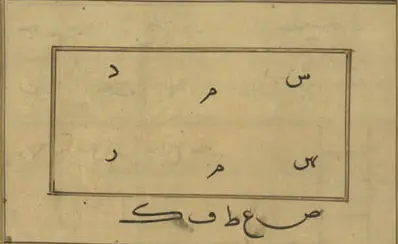 س م د
س م د
ص ع ط ف ک